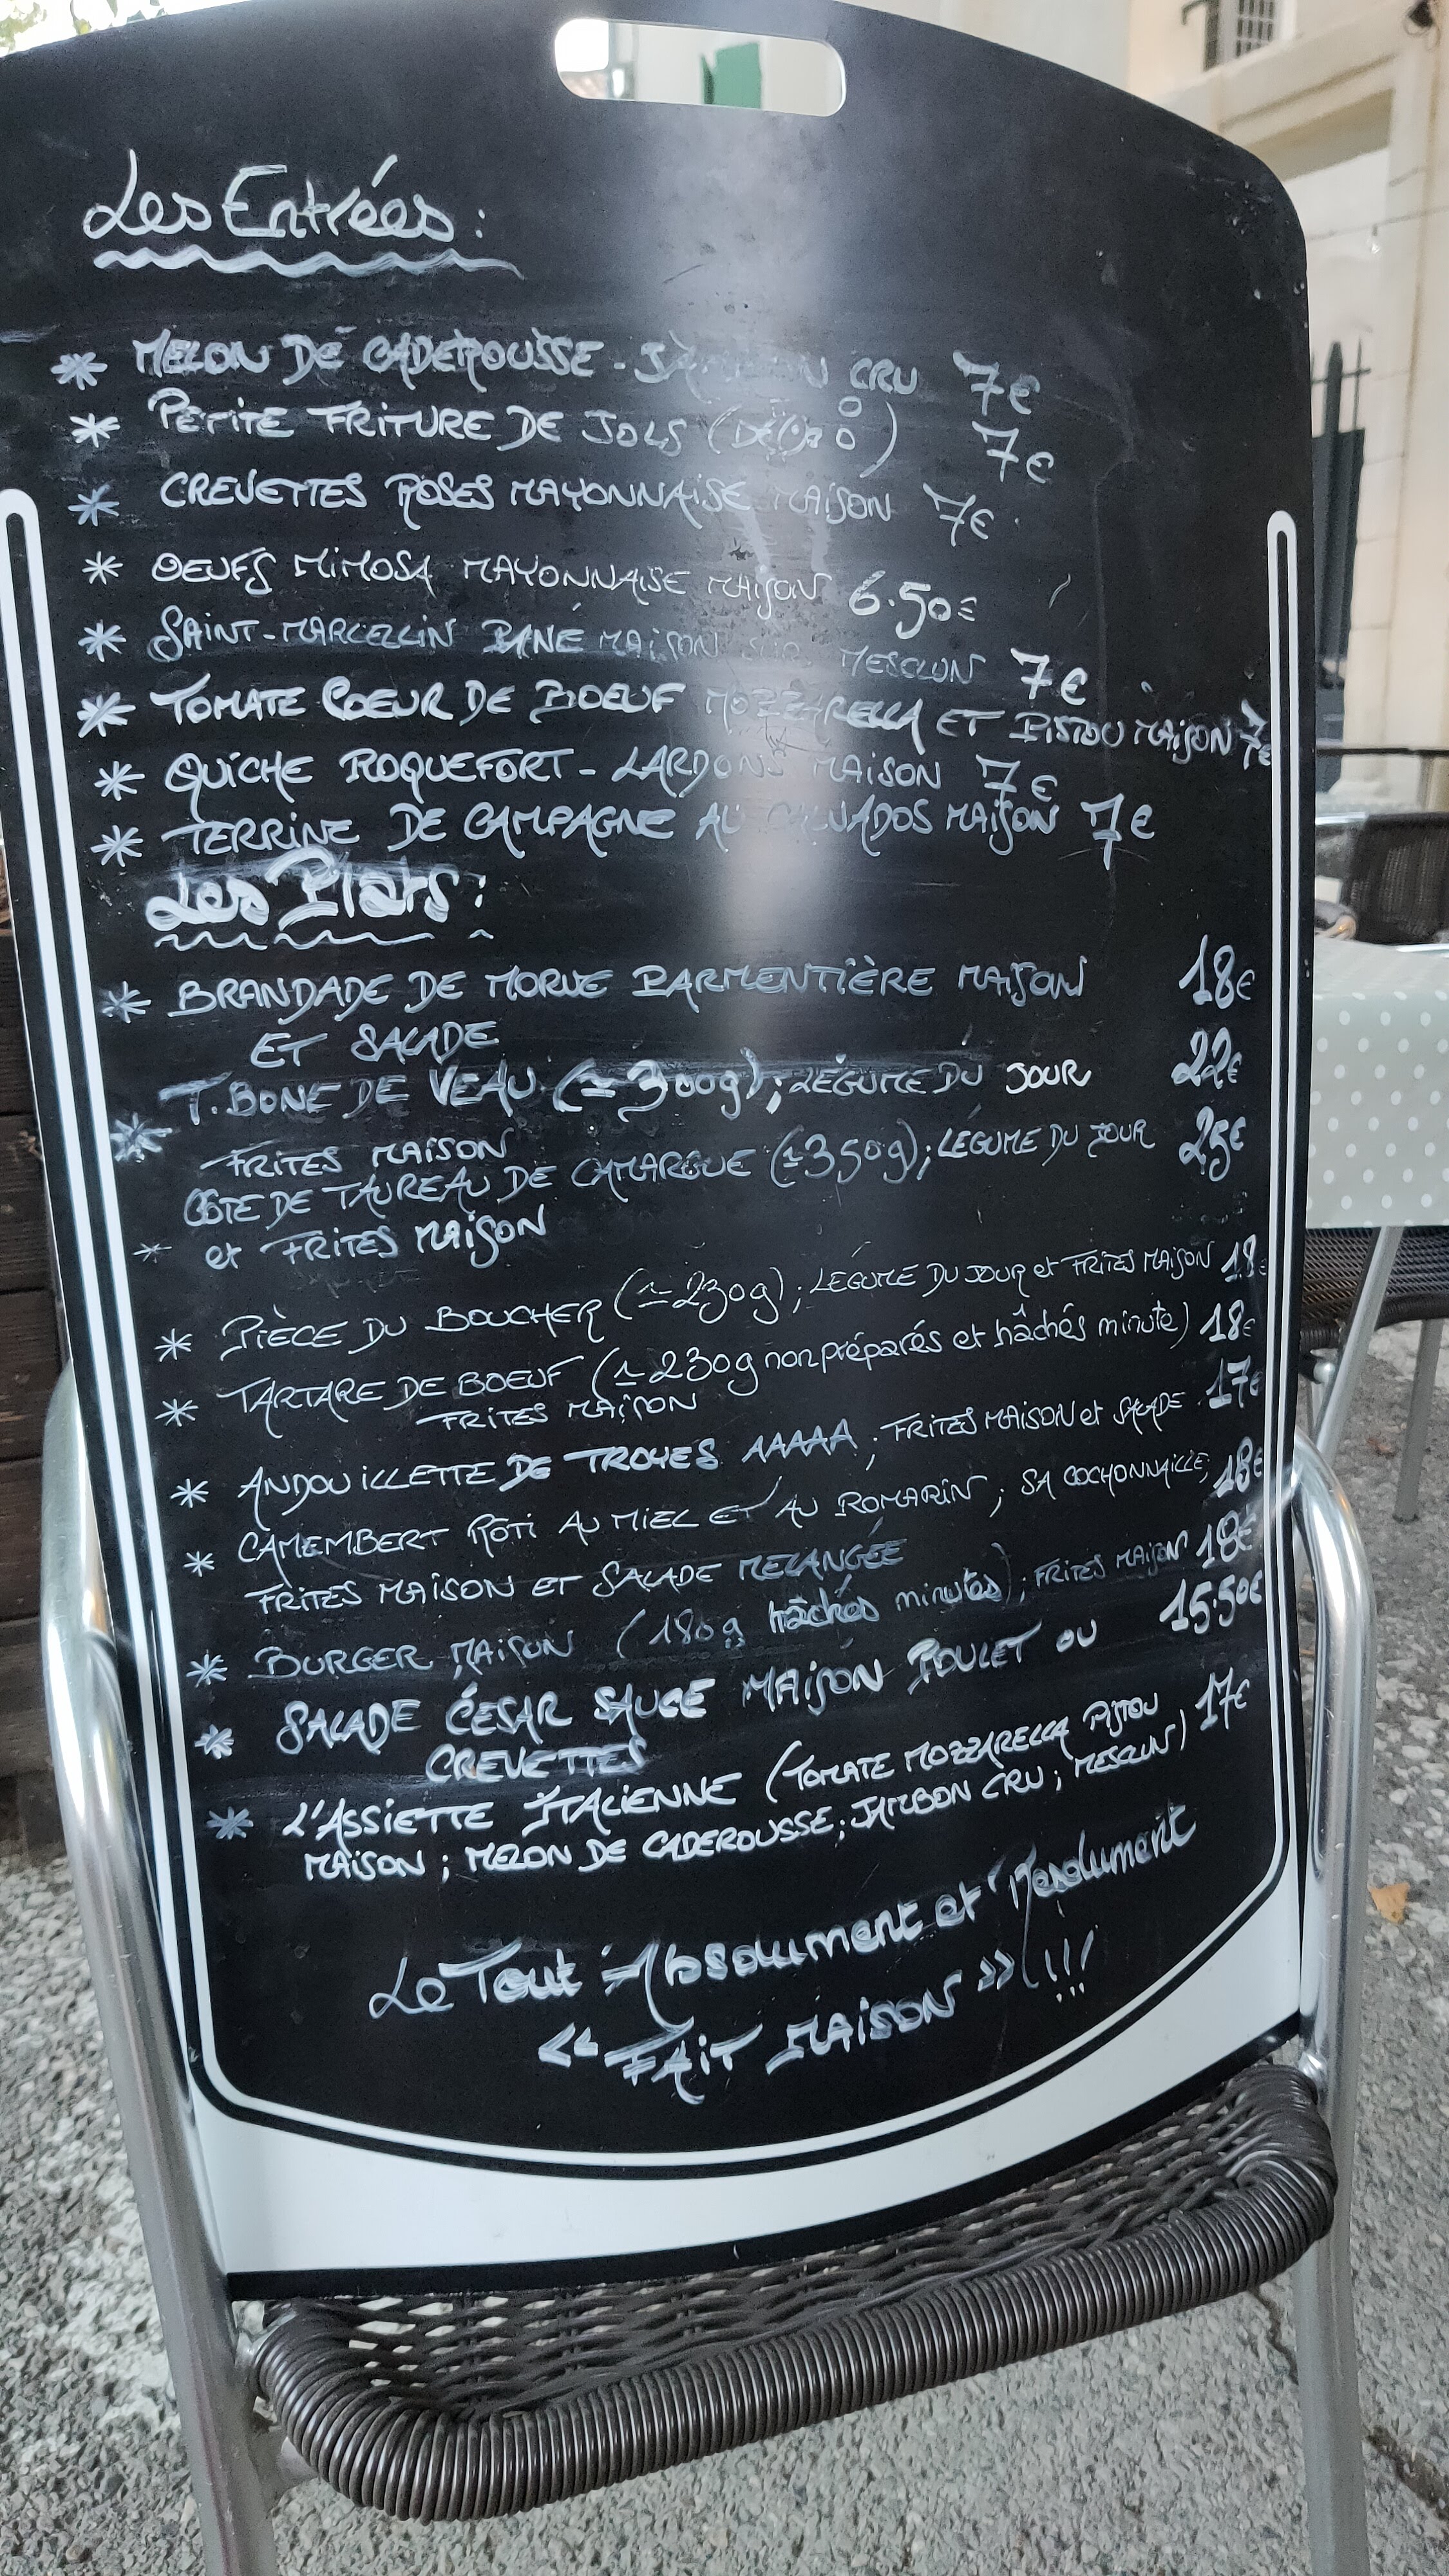 Les Entrées :
* MELON DE CADEROUSSE - JAMBON CRU 7€
* PETITE FRITURE DE JOLS 7€
* CREVETTES ROSES MAYONNAISE MAISON 7€
* OEUFS MIMOSA MAYONNAISE MAISON 6.50€
* SAINT-MARCELLIN PANÉ MAISON SUR MESCLUN 7€
* TOMATE COEUR DE BOEUF MOZZARELLA ET PISTOU MAISON 7€
* QUICHE ROQUEFORT - LARDONS MAISON 7€
* TERRINE DE CAMPAGNE AU CALVADOS MAISON 7€
Les Plats :
* BRANDADE DE MORUE PARMENTIÈRE MAISON 18€
ET SALADE
* T.BONE DE VEAU (≃300g) ; LÉGUME DU JOUR 22€
FRITES MAISON
CÔTE DE TAUREAU DE CAMARGUE (≃350g) ; LÉGUME DU JOUR 25€
* et FRITES MAISON
* PIÈCE DU BOUCHER (≃230g) ; LÉGUME DU JOUR et FRITES MAISON 18€
* TARTARE DE BOEUF (≃230g non préparés et hâchés minute) 18€
FRITES MAISON
* ANDOUILLETTE DE TROYES AAAAA ; FRITES MAISON et SALADE 17€
* CAMEMBERT RÔTI AU MIEL ET AU ROMARIN ; SA COCHONNAILLE ; 18€
FRITES MAISON ET SALADE MELANGÉE
* BURGER MAISON (180g hâchés minutes) ; FRITES MAISON 18€
* SALADE CÉSAR SAUCE MAISON POULET OU 15.50€
CREVETTES
* L'ASSIETTE ITALIENNE (TOMATE MOZZARELLA PISTOU 17€
MAISON ; MELON DE CADEROUSSE ; JAMBON CRU ; MESCLUN)
Le Tout Absolument et
« FAIT MAISON » !!!